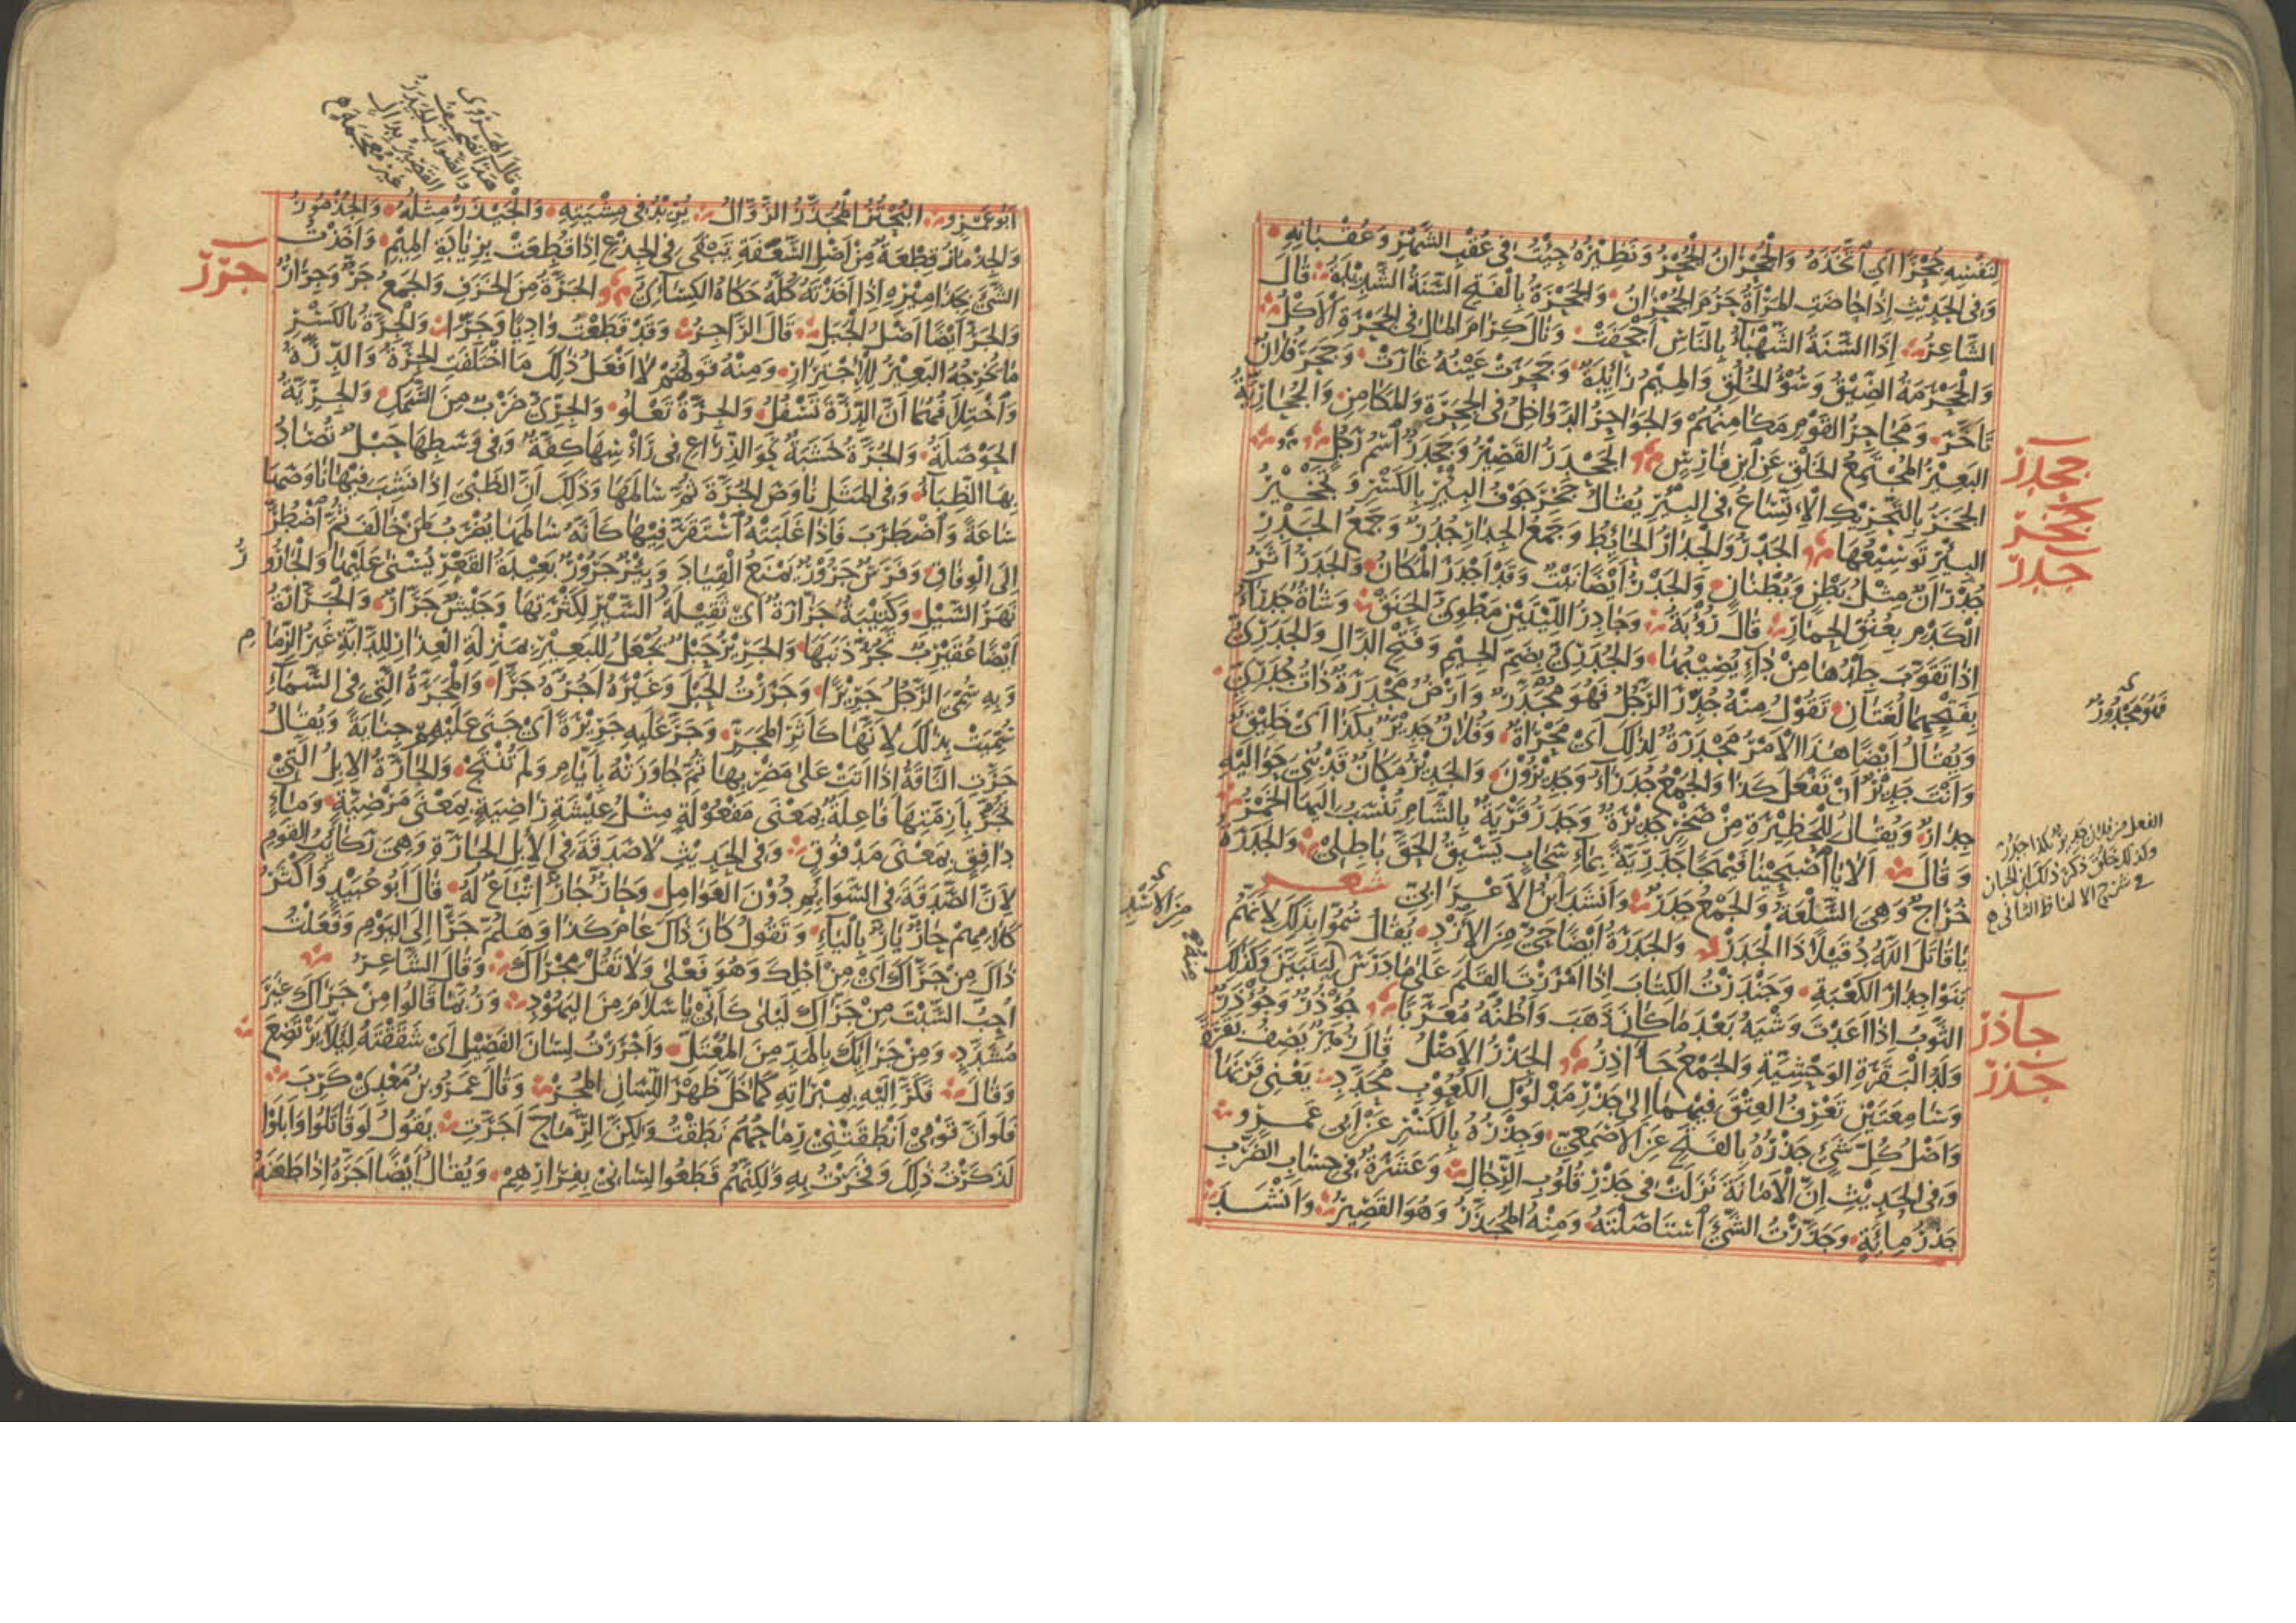 لِنَفْسِهِ جُحْرًا اَيِ اتَّخَذَهُ وَالْجُحْرَانُ الْجُحْرُ وَنَظِيْرُهُ جِئْتُ فِى عُقْبِ الشَّهْرِ وَعُقْبَانِهِ
وَفِى الْحَدِيْثِ اِذَا حَاضَتِ الْمَرْأَةُ حَرُمَ الْجُحْرَانُ وَالْجَحْرَةُ بِالْفَتْحِ السَّنَةُ الشَّدِيْدَةُ قَالَ
الشَّاعِرُ اِذَا السَّنَةُ الشَّهْبَاءُ بِالنَّاسِ اَجْحَفَتْ وَنَالَ كِرَامَ الْمَالِ فِى الْجَحْرَةِ الْاَكْلُ
وَالْجَحْرَمَةُ الضِّيْقُ وَسُوْءُ الْخُلُقِ وَالْمِيْمُ زَائِدَةٌ وَجَحَرَتْ عَيْنُهُ غَارَتْ وَجَحَرَ فُلَانٌ
تَاَخَّرَ وَمَجَاحِرُ الْقَوْمِ مَكَامِنُهُمْ وَالْجَوَاحِرُ الدَّوَاخِلُ فِى الْجِحَرَةِ وَالْمَكَامِنِ وَالْجُحَارِيَّةُ
الْبَعِيْرُ الْمُجْتَمِعُ الْخَلْقِ عَنِ ابْنِ فَارِسٍ الْجَحْدَرُ الْقَصِيْرُ وَجَحْدَرٌ اسْمُ رَجُلٍ
جحدر
الْجَخَرُ بِالتَّحْرِيْكِ الْاِتِّسَاعُ فِى الْبِئْرِ يُقَالُ جَخِرَ جَوْفُ الْبِئْرِ بِالْكَسْرِ وَتَجْخِيْرُ
جخر
الْبِئْرِ تَوْسِيْعُهَا الْجَدْرُ وَالْجِدَارُ الْحَائِطُ وَجَمْعُ الْجِدَارِ جُدُرٌ وَجَمْعُ الْجَدْرِ
جدر
جُدْرَانٌ مِثْلُ بَطْنٍ وَبُطْنَانٍ وَالْجَدْرُ اَيْضًا نَبْتٌ وَقَدْ اَجْدَرَ الْمَكَانُ وَالْجَدَرُ اَثَرُ
الْكَدْمِ بِعُنُقِ الْحِمَارِ قَالَ رُؤْبَةُ وَجَادِرُ اللِّيْتَيْنِ مَطْوِىُّ الْحَنَقْ وَشَاةٌ جَدْرَاءُ
اِذَا تَقَوَّبَ جِلْدُهَا مِنْ دَاءٍ يُصِيْبُهَا وَالْجُدَرِىُّ بِضَمِّ الْجِيْمِ وَفَتْحِ الدَّالِ وَالْجَدَرِىُّ
بِفَتْحِهِمَا لُغَتَانِ تَقُوْلُ مِنْهُ جُدِّرَ الرَّجُلُ فَهُوَ مُجَدَّرٌ وَاَرْضٌ مَجْدَرَةٌ ذَاتُ جُدَرِىٍّ
فَهُوَ مَجْدُوْرٌ
وَيُقَالُ اَيْضًا هٰذَا الْاَمْرُ مَجْدَرَةٌ لِذٰلِكَ اَىْ مَحْرَاةٌ وَفُلَانٌ جَدِيْرٌ بِكَذَا اَىْ خَلِيْقٌ
وَاَنْتَ جَدِيْرٌ اَنْ تَفْعَلَ كَذَا وَالْجَمْعُ جُدَرَاءُ وَجَدِيْرُوْنَ وَالْجَدِيْرُ مَكَانٌ قَدْ بُنِىَ حَوَالَيْهِ
جِدَارٌ وَيُقَالُ لِلْحَظِيْرَةِ مِنْ صَخْرٍ جَدِيْرَةٌ وَجَدَرُ قَرْيَةٌ بِالشَّامِ تُنْسَبُ اِلَيْهَا الْخَمْرُ
وَقَالَ اَلَا يَا اصْبَحِيْنَا فَيْهَجًا جَدَرِيَّةً بِمَاءِ سَحَابٍ يَسْبِقُ الْحَقَّ بَاطِلِىْ وَالْجَدَرَةُ
خُرَاجٌ وَهِىَ السِّلْعَةُ وَالْجَمْعُ جَدَرٌ وَاَنْشَدَ ابْنُ الْاَعْرَابِىِّ شعر
يَا قَاتَلَ اللّٰهُ دُقَيْلًا ذَا الْجَدَرْ وَالْجَدَرَةُ اَيْضًا حَىٌّ مِنَ الْاَزْدِ يُقَالُ سُمُّوْا بِذٰلِكَ لِاَنَّهُمْ
مِنَ الْاَسْدِ
بَنَوْا جِدَارَ الْكَعْبَةِ وَجَنْدَرْتُ الْكِتَابَ اِذَا اَمْرَرْتَ الْقَلَمَ عَلٰى مَا دَرَسَ لِيَتَبَيَّنَ وَكَذٰلِكَ
الثَّوْبُ اِذَا اَعَدْتَ وَشْيَهُ بَعْدَ مَا كَانَ ذَهَبَ وَاَظُنُّهُ مُعَرَّبًا جُؤْذُرٌ وَجُؤْذَرٌ
جاذر
وَلَدُ الْبَقَرَةِ الْوَحْشِيَّةِ وَالْجَمْعُ جَآذِرُ الْجَذْرُ الْاَصْلُ قَالَ زُهَيْرٌ يَصِفُ بَقَرَةً
جذر
وَسَامِعَتَيْنِ تَعْرِفُ الْعِتْقَ فِيْهِمَا اِلٰى جَذْرِ مَدْلُوْكِ الْكُعُوْبِ مُحَدَّدِ يَعْنِى قَرْنَهَا
وَاَصْلُ كُلِّ شَىْءٍ جَذْرُهُ بِالْفَتْحِ عَنِ الْاَصْمَعِىِّ وَجِذْرُهُ بِالْكَسْرِ عَنْ اَبِى عَمْرٍو
وَفِى الْحَدِيْثِ اِنَّ الْاَمَانَةَ نَزَلَتْ فِى جَذْرِ قُلُوْبِ الرِّجَالِ وَعَشَرَةٌ فِى حِسَابِ الضَّرْبِ
جَذْرُ مِائَةٍ وَجَذَرْتُ الشَّىْءَ اسْتَأْصَلْتُهُ وَمِنْهُ الْمُجَذَّرُ وَهُوَ الْقَصِيْرُ وَاَنْشَدَ
قَالَ الْهَرَوِى
هٰذَا تَصْحِيْفٌ
وَالصَّوَابُ الْجَيْدَرُ
الْقَصِيْرُ بِدَالٍ
غَيْرِ مُعْجَمَةٍ
اَبُوْ عَمْرٍو الْبُحْتُرُ الْمُجَذَّرُ الزَّوَّالُ يُرِيْدُ فِى مِشْيَتِهِ وَالْجَيْذَرُ مِثْلُهُ وَالْجُذْمُوْرُ
وَالْجِذْمَارُ قِطْعَةٌ مِنْ اَصْلِ السَّعَفَةِ تَبْقٰى فِى الْجِذْعِ اِذَا قُطِعَتْ بِزِيَادَةِ الْمِيْمِ وَاَخَذْتُ
الشَّىْءَ بِجَذَامِيْرِهِ اِذَا اَخَذْتَهُ كُلَّهُ حَكَاهُ الْكِسَائِىُّ الْجَرَّةُ مِنَ الْخَزَفِ وَالْجَمْعُ جَرٌّ وَجِرَارٌ
جرر
وَالْجَرُّ اَيْضًا اَصْلُ الْجَبَلِ قَالَ الرَّاجِزُ وَقَدْ قَطَعْتُ وَادِيًا وَجَرَّا وَالْجِرَّةُ بِالْكَسْرِ
مَا يُخْرِجُهُ الْبَعِيْرُ لِلْاِجْتِرَارِ وَمِنْهُ قَوْلُهُمْ لَا اَفْعَلُ ذٰلِكَ مَا اخْتَلَفَتِ الْجِرَّةُ وَالدِّرَّةُ
وَاخْتِلَافُهُمَا اَنَّ الدِّرَّةَ تَسْفُلُ وَالْجِرَّةُ تَعْلُو وَالْجِرِّىُّ ضَرْبٌ مِنَ السَّمَكِ وَالْجِرِّيَّةُ
الْحَوْصَلَةُ وَالْجُرَّةُ خَشَبَةٌ نَحْوَ الذِّرَاعِ فِى رَأْسِهَا كِفَّةٌ وَفِى وَسَطِهَا حَبْلٌ تُصَادُ
بِهَا الظِّبَاءُ وَفِى الْمَثَلِ نَاوَصَ الْجُرَّةَ ثُمَّ سَالَمَهَا وَذٰلِكَ اَنَّ الظَّبْىَ اِذَا نَشِبَ فِيْهَا نَاوَصَهَا
سَاعَةً وَاضْطَرَبَ فَاِذَا غَلَبَتْهُ اسْتَقَرَّ فِيْهَا كَاَنَّهُ سَالَمَهَا يُضْرَبُ لِمَنْ خَالَفَ ثُمَّ اضْطُرَّ
اِلَى الْوِفَاقِ وَفَرَسٌ جَرُوْرٌ يَمْنَعُ الْقِيَادَ وَبِئْرٌ جَرُوْرٌ بَعِيْدَةُ الْقَعْرِ يُسْنٰى عَلَيْهَا وَالْجَارُوْرُ
نَهْرُ السَّيْلِ وَكَتِيْبَةٌ جَرَّارَةٌ اَىْ ثَقِيْلَةُ السَّيْرِ لِكَثْرَتِهَا وَجَيْشٌ جَرَّارٌ وَالْجَرَّارَةُ
اَيْضًا عُقَيْرِبٌ تَجُرُّ ذَنَبَهَا وَالْجَرِيْرُ حَبْلٌ يُجْعَلُ لِلْبَعِيْرِ بِمَنْزِلَةِ الْعِذَارِ لِلدَّابَّةِ غَيْرُ الزِّمَامِ
وَبِهِ سُمِّىَ الرَّجُلُ جَرِيْرًا وَجَرَرْتُ الْحَبْلَ وَغَيْرَهُ اَجُرُّهُ جَرًّا وَالْمَجَرَّةُ الَّتِىْ فِى السَّمَاءِ
سُمِّيَتْ بِذٰلِكَ لِاَنَّهَا كَاَثَرِ الْمَجَرِّ وَجَرَّ عَلَيْهِ جَرِيْرَةً اَىْ جَنٰى عَلَيْهِ جِنَايَةً وَيُقَالُ
جَرَّتِ النَّاقَةُ اِذَا اَتَتْ عَلٰى مَضْرِبِهَا ثُمَّ جَاوَزَتْهُ بِاَيَّامٍ وَلَمْ تُنْتَجْ وَالْجَارَّةُ الْاِبِلُ الَّتِىْ
تُجَرُّ بِاَزِمَّتِهَا فَاعِلَةٌ بِمَعْنٰى مَفْعُوْلَةٍ مِثْلُ عِيْشَةٍ رَاضِيَةٍ بِمَعْنٰى مَرْضِيَّةٍ وَمَاءٍ
دَافِقٍ بِمَعْنٰى مَدْفُوْقٍ وَفِى الْحَدِيْثِ لَا صَدَقَةَ فِى الْاِبِلِ الْجَارَّةِ وَهِىَ رَكَائِبُ الْقَوْمِ
لِاَنَّ الصَّدَقَةَ فِى السَّوَائِمِ دُوْنَ الْعَوَامِلِ وَحَارٌّ جَارٌّ اِتْبَاعٌ لَهُ قَالَ اَبُوْ عُبَيْدٍ وَاَكْثَرُ
كَلَامِهِمْ حَارٌّ يَارٌّ بِالْيَاءِ وَتَقُوْلُ كَانَ ذَاكَ عَامَ كَذَا وَهَلُمَّ جَرًّا اِلَى الْيَوْمِ وَفَعَلْتُ
ذَاكَ مِنْ جَرَّاكَ اَىْ مِنْ اَجْلِكَ وَهُوَ فَعْلٰى وَلَا تَقُلْ مِجْرَاكَ وَقَالَ الشَّاعِرُ
اُحِبُّ السَّبْتَ مِنْ جَرَّاكِ لَيْلٰى كَاَنِّىْ يَا سَلَامَ مِنَ الْيَهُوْدِ وَرُبَّمَا قَالُوْا مِنْ جَرَاكَ غَيْرَ
مُشَدَّدٍ وَمِنْ جَرَائِكَ بِالْمَدِّ مِنَ الْمُعْتَلِّ وَاَجْرَرْتُ لِسَانَ الْفَصِيْلِ اَىْ شَقَقْتَهُ لِئَلَّا يَرْتَضِعَ
وَقَالَ فَكَرَّ اِلَيْهِ بِمِبْرَاتِهِ كَمَا خَلَّ ظَهْرَ اللِّسَانِ الْمُجِرّْ وَقَالَ عَمْرُو بْنُ مَعْدِىْ كَرِبَ
فَلَوْ اَنَّ قَوْمِىْ اَنْطَقَتْنِىْ رِمَاحُهُمْ نَطَقْتُ وَلٰكِنَّ الرِّمَاحَ اَجَرَّتِ يَقُوْلُ لَوْ قَاتَلُوْا وَاَبْلَوْا
لَذَكَرْتُ ذٰلِكَ وَفَخَرْتُ بِهِ وَلٰكِنَّهُمْ قَطَعُوْا لِسَانِىْ بِفِرَارِهِمْ وَيُقَالُ اَيْضًا اَجَرَّهُ اِذَا طَعَنَهُ